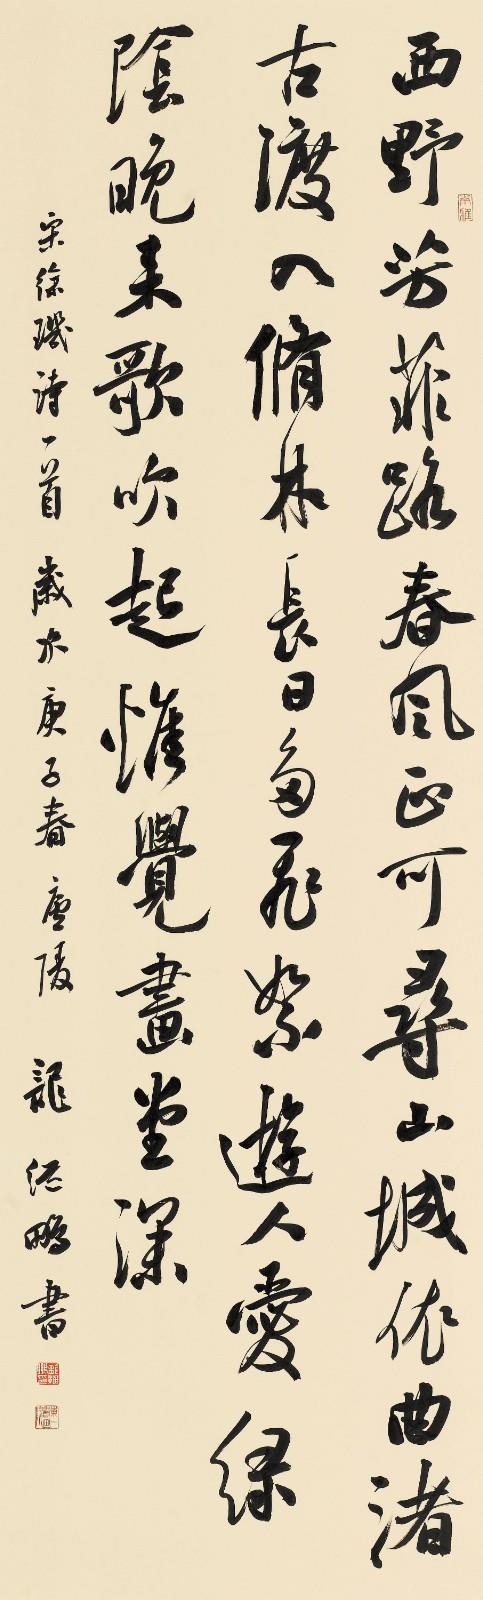 西野芳菲路春風正可尋山城依曲渚
古渡入脩林長日多飛絮遊人愛綠
陰晚來歌吹起惟覺畫堂深
宋徐璣詩一首歲在庚子春廬陵龍海鵬書